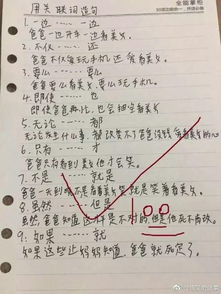 全能掌柜
用关联词造句
1. 一边……一边
爸爸一边开车一边看美女。
2. 不仅……还
爸爸不仅爱玩手机还爱看美女。
3. 要么……要么
爸爸要么看美女要么玩手机。
4. 即使……也
即使会有再忙，也会把字看美女
5. 无论……都
无论发生什么事，都改变不了爸爸没钱爱看美女的心
6. 只有……才
爸爸只有看到美女他才会笑。
7. 不是……就是
爸爸一天到晚不是看着美女就是想着看美女。
8. 虽然……但是
虽然爸爸知道这样是不对的但是他死不悔改。
9. 如果……就
如果这些让妈妈知道，爸爸就死定了。
100